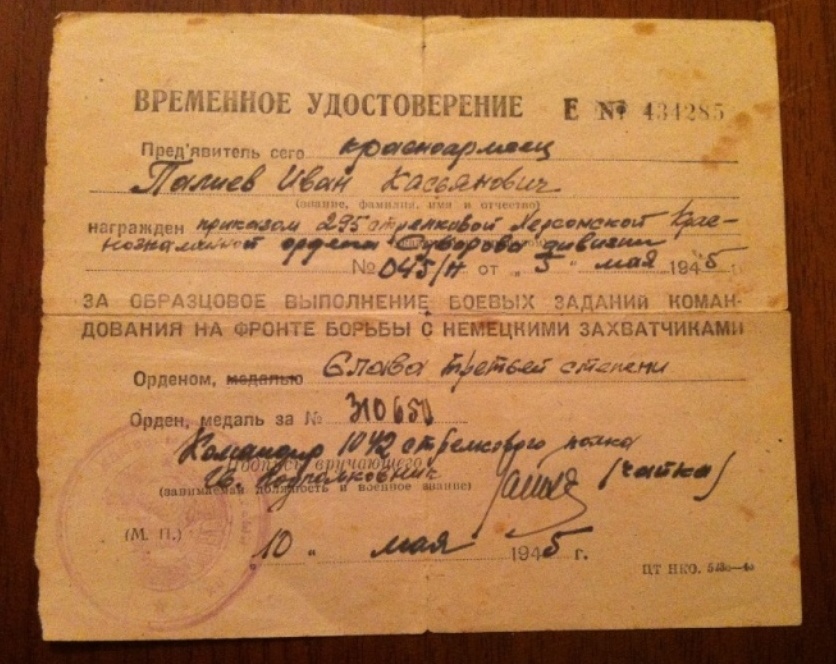 ВРЕМЕННОЕ УДОСТОВЕРЕНИЕ Е № 434285
Пред'явитель сего красноармеец
Палиев Иван Касьянович
(звание, фамилия, имя и отчество)
награжден приказом 295 стрелковой Херсонской Крас-
нознаменной ордена Суворова дивизии
№ 045/н от „ 5 " мая 1945 г.
ЗА ОБРАЗЦОВОЕ ВЫПОЛНЕНИЕ БОЕВЫХ ЗАДАНИЙ КОМАН-
ДОВАНИЯ НА ФРОНТЕ БОРЬБЫ С НЕМЕЦКИМИ ЗАХВАТЧИКАМИ
Орденом, медалью Слава третьей степени
Орден, медаль за № 310650
Командир 1042 стрелкового полка
Подпись вручающего
Гв. Подполковник (Чайка)
(занимаемая должность и военное звание)
(М. П.)
10 " мая 1945 г.
ЦТ НКО.